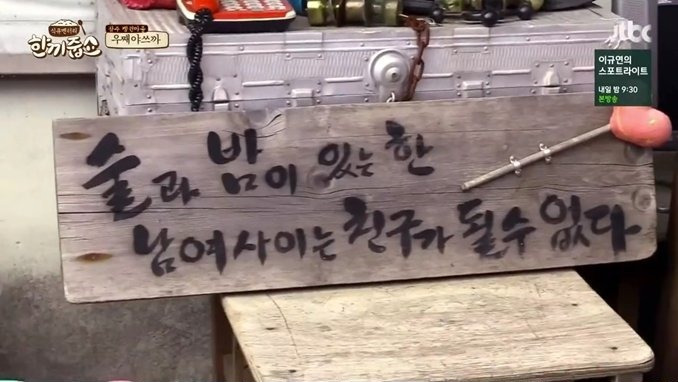 식큐멘터리
한끼줍쇼
우째야쓰까
jtbc
이규연의
스포트라이트
내일 밤 9:30
본방송
술과 밤이 있는 한
남여사이는 친구가 될수 없다